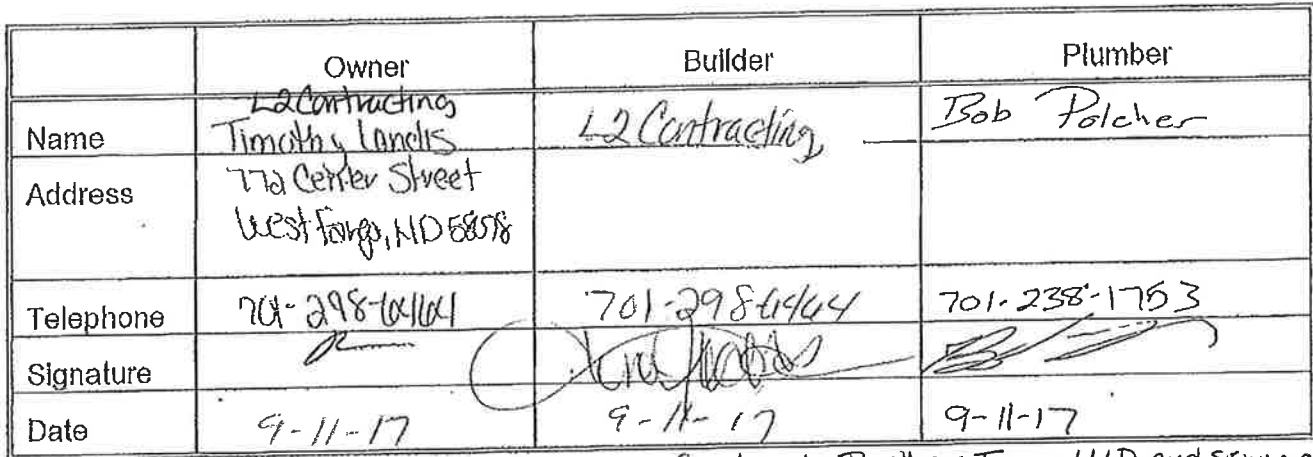 Owner Builder Plumber
Name L2 Contracting
Timothy Landis L2 Contracting Bob Polcher
Address 772 Center Street
West Fargo, ND 58078
Telephone 701-298-6464 701-298-6464 701-238-1753
Signature
Date 9-11-17 9-11-17 9-11-17